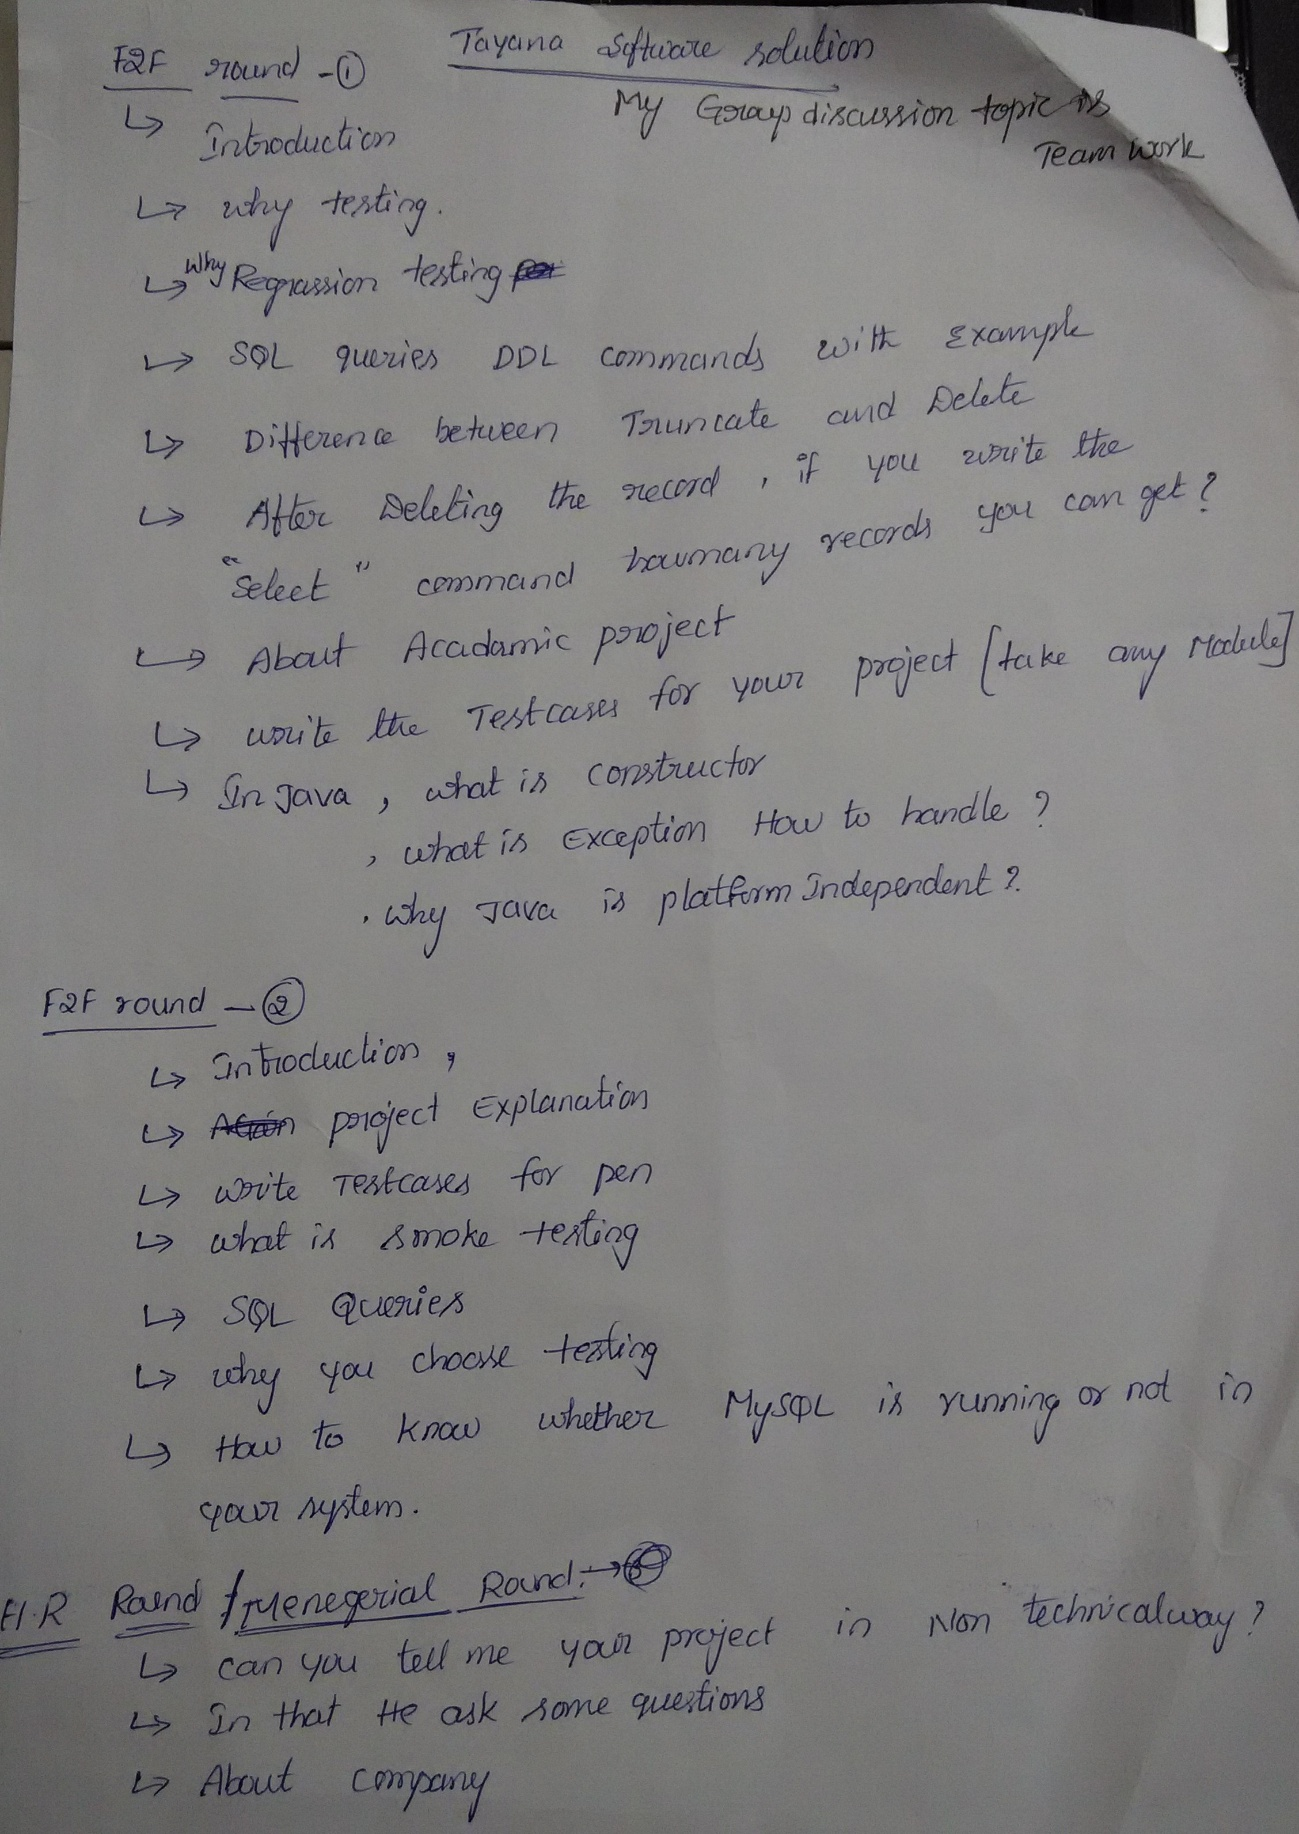 Tayana Software solution
F2F round - ①
My Group discussion topic is
Team Work
↳ Introduction
↳ why testing.
↳ Why Regrassion testing
↳ SQL queries DDL commands with Example
↳ Difference between Truncate and Delete
↳ After Deleting the record, if you write the
"Select" command howmany records you can get?
↳ About Acadamic project
↳ write the Testcases for your project [take any Module]
↳ In Java, what is constructor
, what is Exception How to handle?
. why Java is platform Independent?
F2F round - ②
↳ Introduction,
↳ project Explanation
↳ write Testcases for pen
↳ what is smoke testing
↳ SQL Queries
↳ why you choose testing
↳ How to know whether MySQL is running or not in
your system.
H.R Round / Menegerial Round. →
↳ can you tell me your project in Non technicalway?
↳ In that He ask some questions
↳ About company